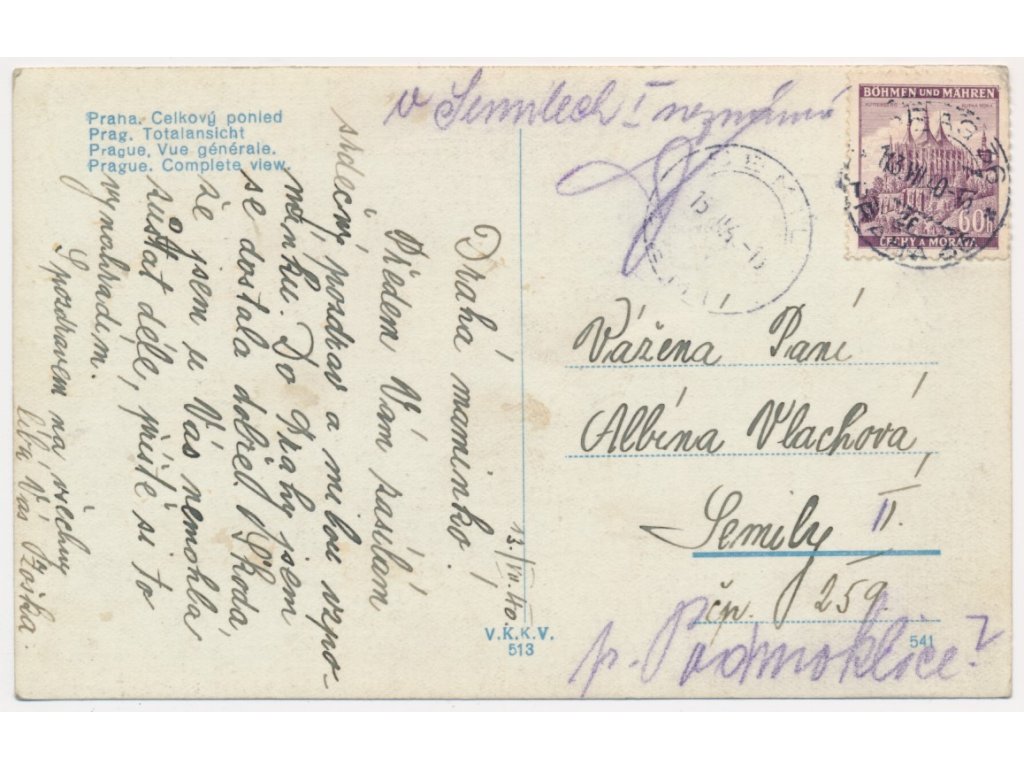 Praha. Celkový pohled
Prag. Totalansicht
Prague. Vue générale.
Prague. Complete view.
v Semilech I neznámá
BÖHMEN UND MÄHREN
60h
ČECHY A MORAVA
13./VII.40.
Drahá maminko!
Předem Vám zasílám
srdečný pozdrav a milou vzpo-
mínku. Do Prahy jsem
se dostala dobře. Škoda,
že jsem u Vás nemohla
zůstat déle, příště si to
vynahradím.
S pozdravem na všechny
líbá Vás
Vážena Paní
Albína Vlachová
Semily II.
čp. 259.
p. Podmoklice?
V.K.K.V.
513
541